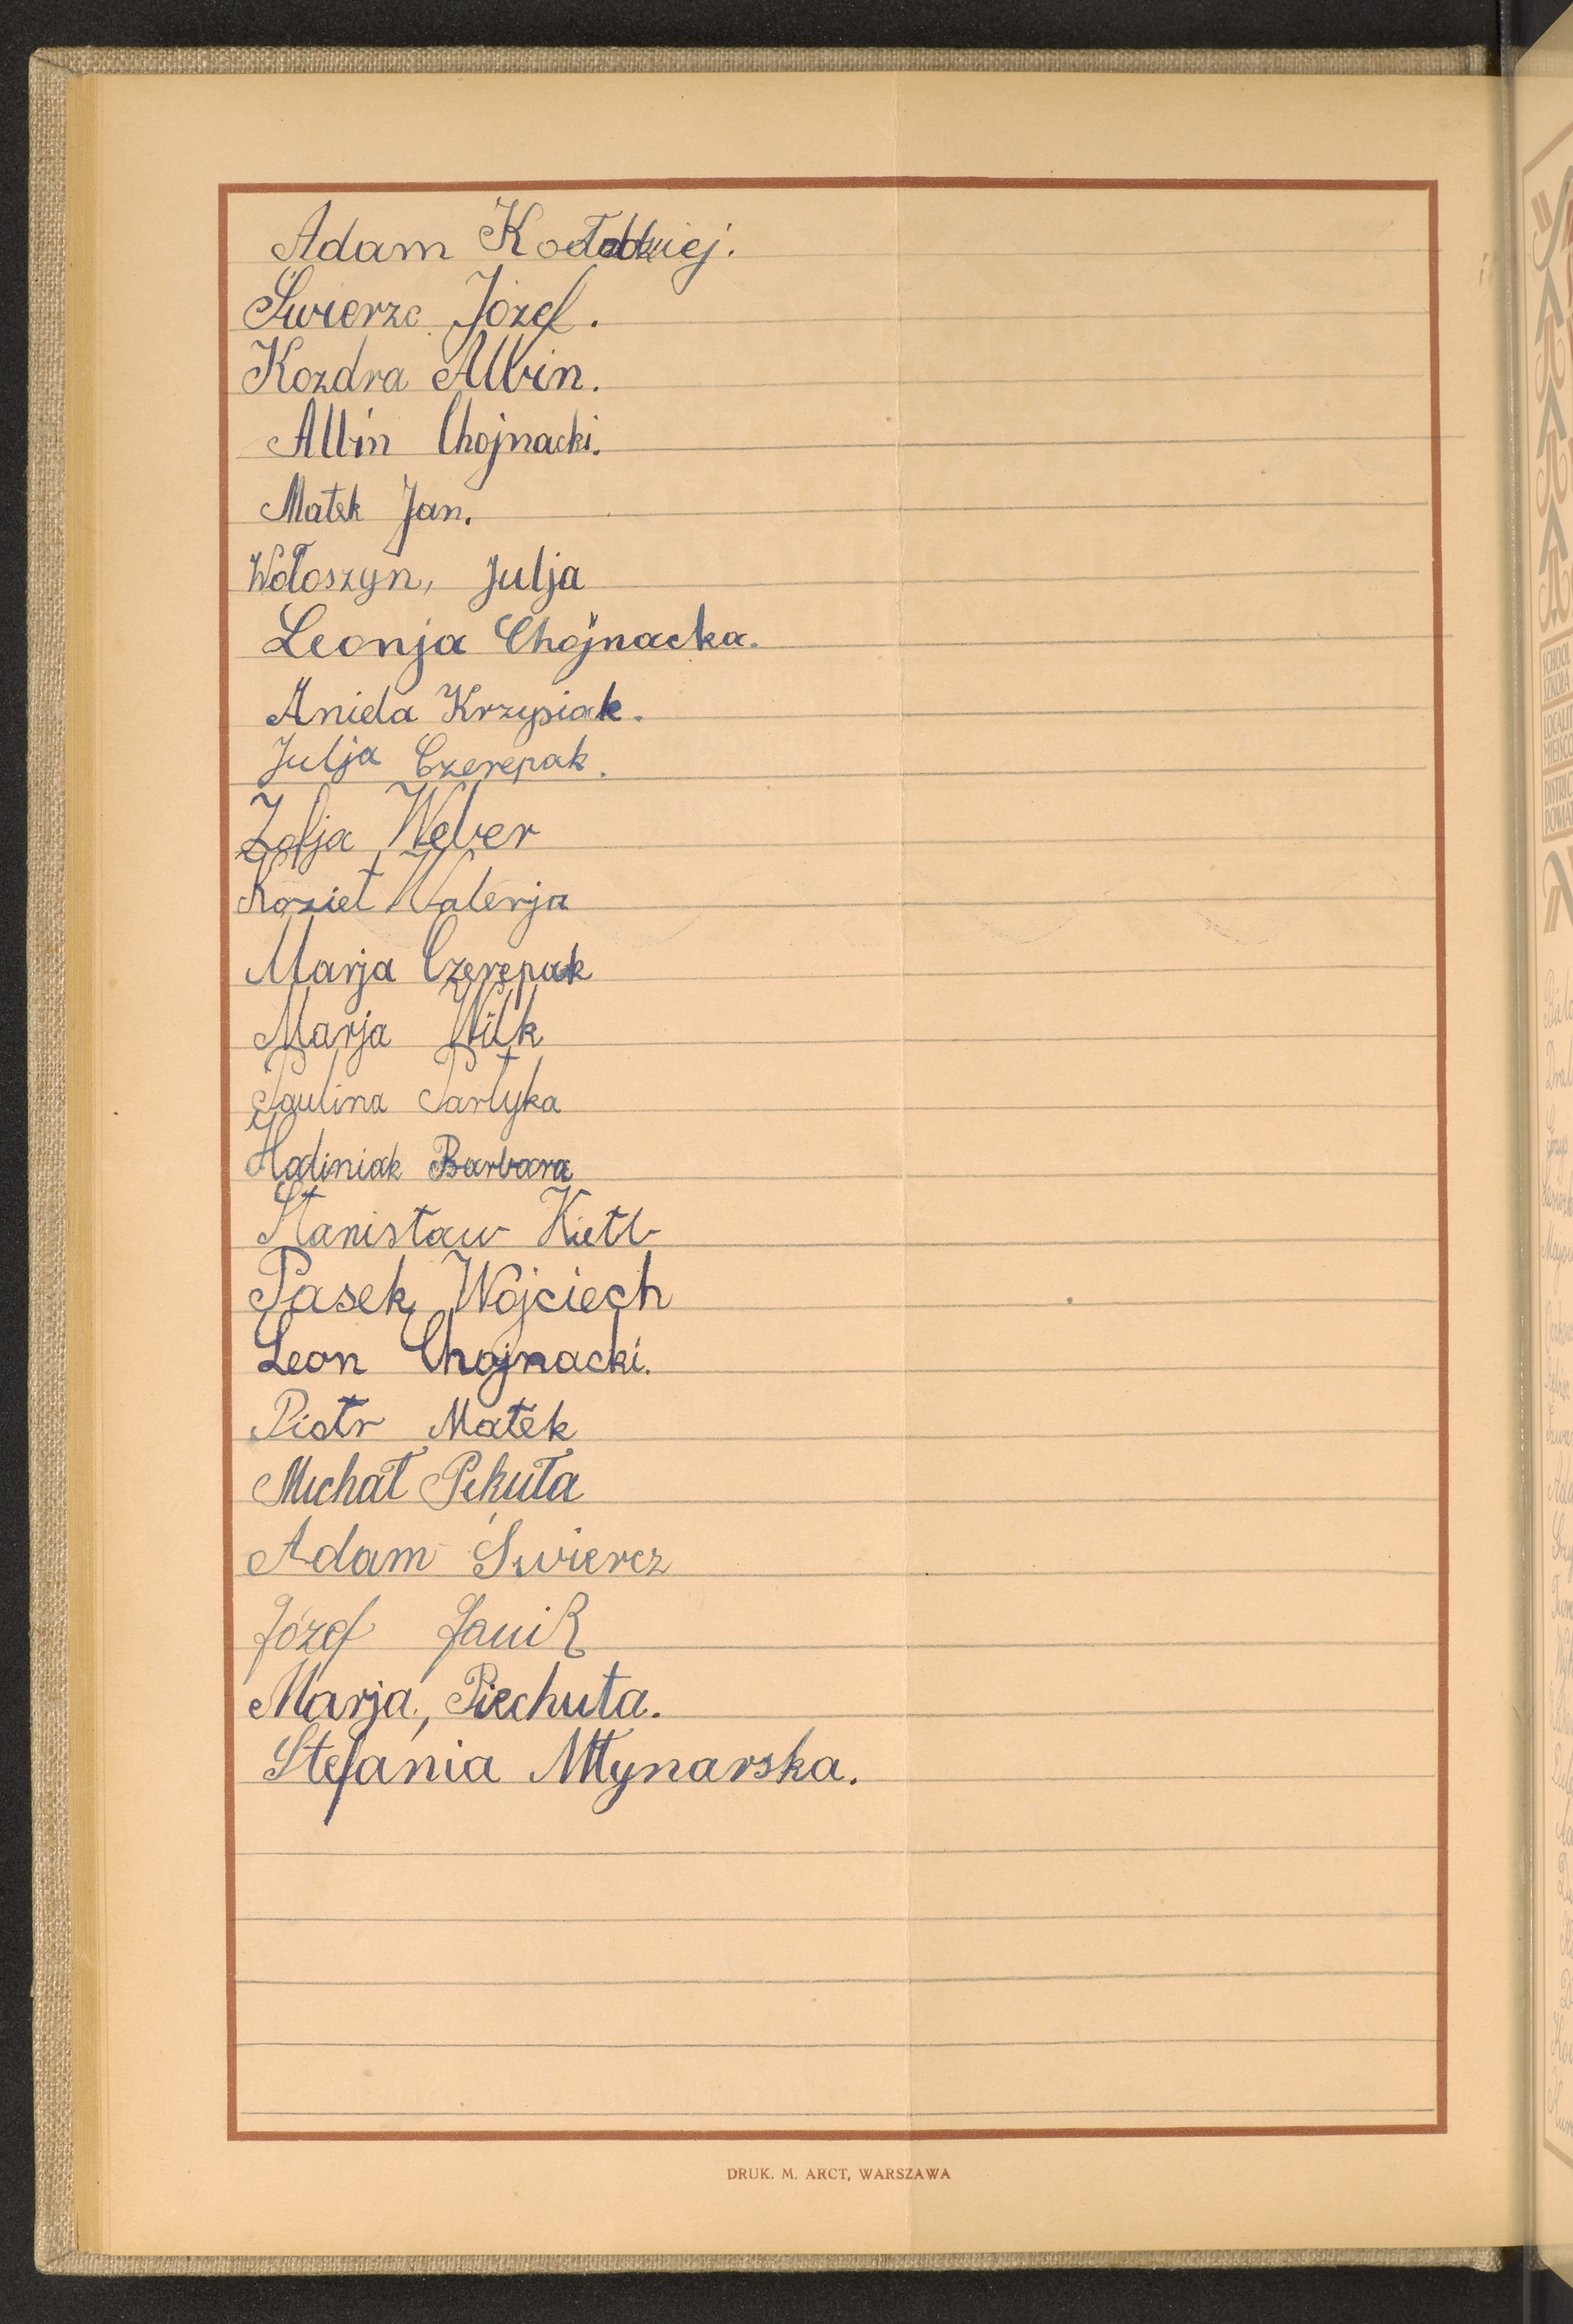 Adam Kołodziej.
Świerzc Józef.
Kozdra Albin.
Albin Chojnacki.
Małek Jan.
Wołoszyn, Julja
Leonja Chojnacka.
Aniela Krzysiak.
Julja Czerepak.
Zofja Weber
Kozieł Walerja
Marja Czerepak
Marja Wilk
Paulina Partyka
Hadiniak Barbara
Stanisław Kiełb
Pasek Wojciech
Leon Chojnacki.
Piotr Małek
Michał Pekuła
Adam Świercz
Józef Janik
Marja, Piechuta.
Stefania Młynarska.
DRUK. M. ARCT, WARSZAWA